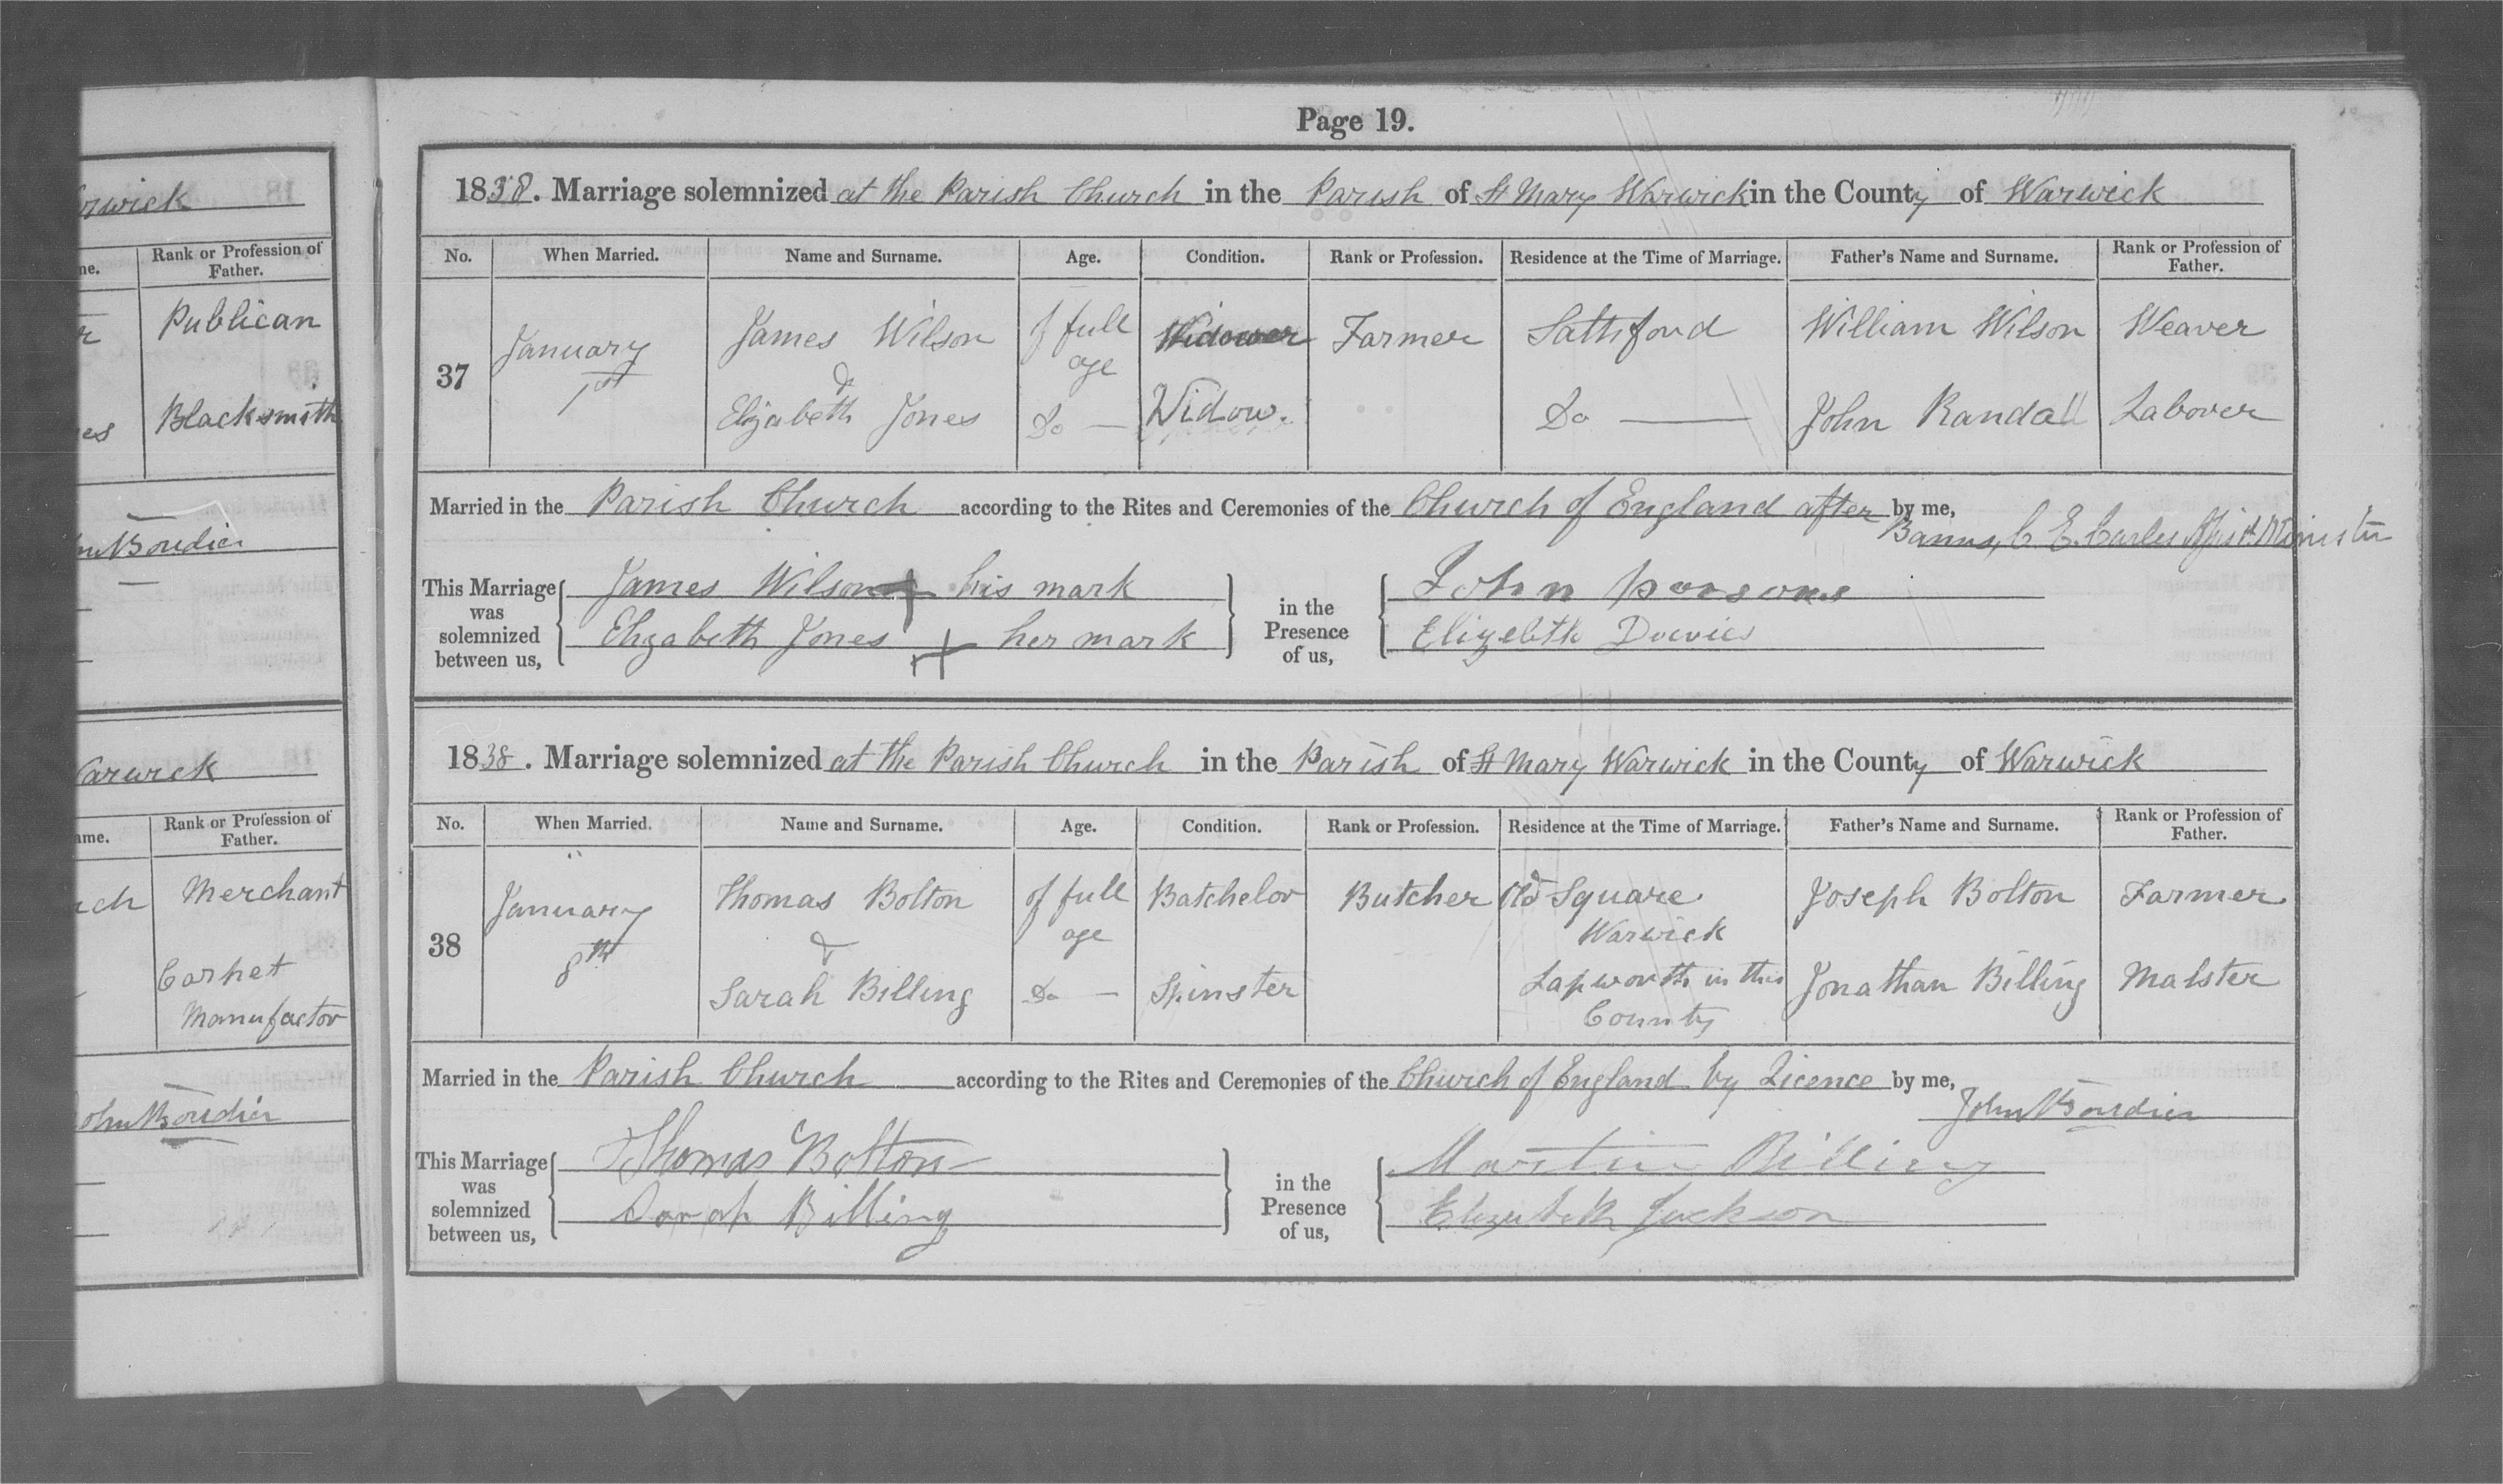 Page 19.
1838. Marriage solemnized at the Parish Church in the Parish of St Mary Warwick in the County of Warwick
No. When Married. Name and Surname. Age. Condition. Rank or Profession. Residence at the Time of Marriage. Father's Name and Surname. Rank or Profession of Father.
37 January 1st James Wilson of full age Widower Farmer William Wilson Weaver
&
Elizabeth Jones Do Widow. Do John Randall Labover
Married in the Parish Church according to the Rites and Ceremonies of the Church of England after by me,
Banns, C E Carles Minister
This Marriage was solemnized between us, James Wilson + his mark
Elizabeth Jones + her mark
in the Presence of us, John parsons
Elizebith Davies
1838. Marriage solemnized at the Parish Church in the Parish of St Mary Warwick in the County of Warwick
No. When Married. Name and Surname. Age. Condition. Rank or Profession. Residence at the Time of Marriage. Father's Name and Surname. Rank or Profession of Father.
38 January 8th Thomas Bolton of full age Batchelor Butcher Old Square Warwick Joseph Bolton Farmer
&
Sarah Billing Do Spinster Lapworth in this County Jonathan Billing Malster
Married in the Parish Church according to the Rites and Ceremonies of the Church of England by Licence by me,
John Boudier
This Marriage was solemnized between us, Thomas Bolton
Sarah Billing
in the Presence of us, Martin Billing
Elizabeth Jackson
Rank or Profession of Father.
Publican
Blacksmith
Boudier
Rank or Profession of Father.
Merchant
Carpet
Manufactor
Boudier